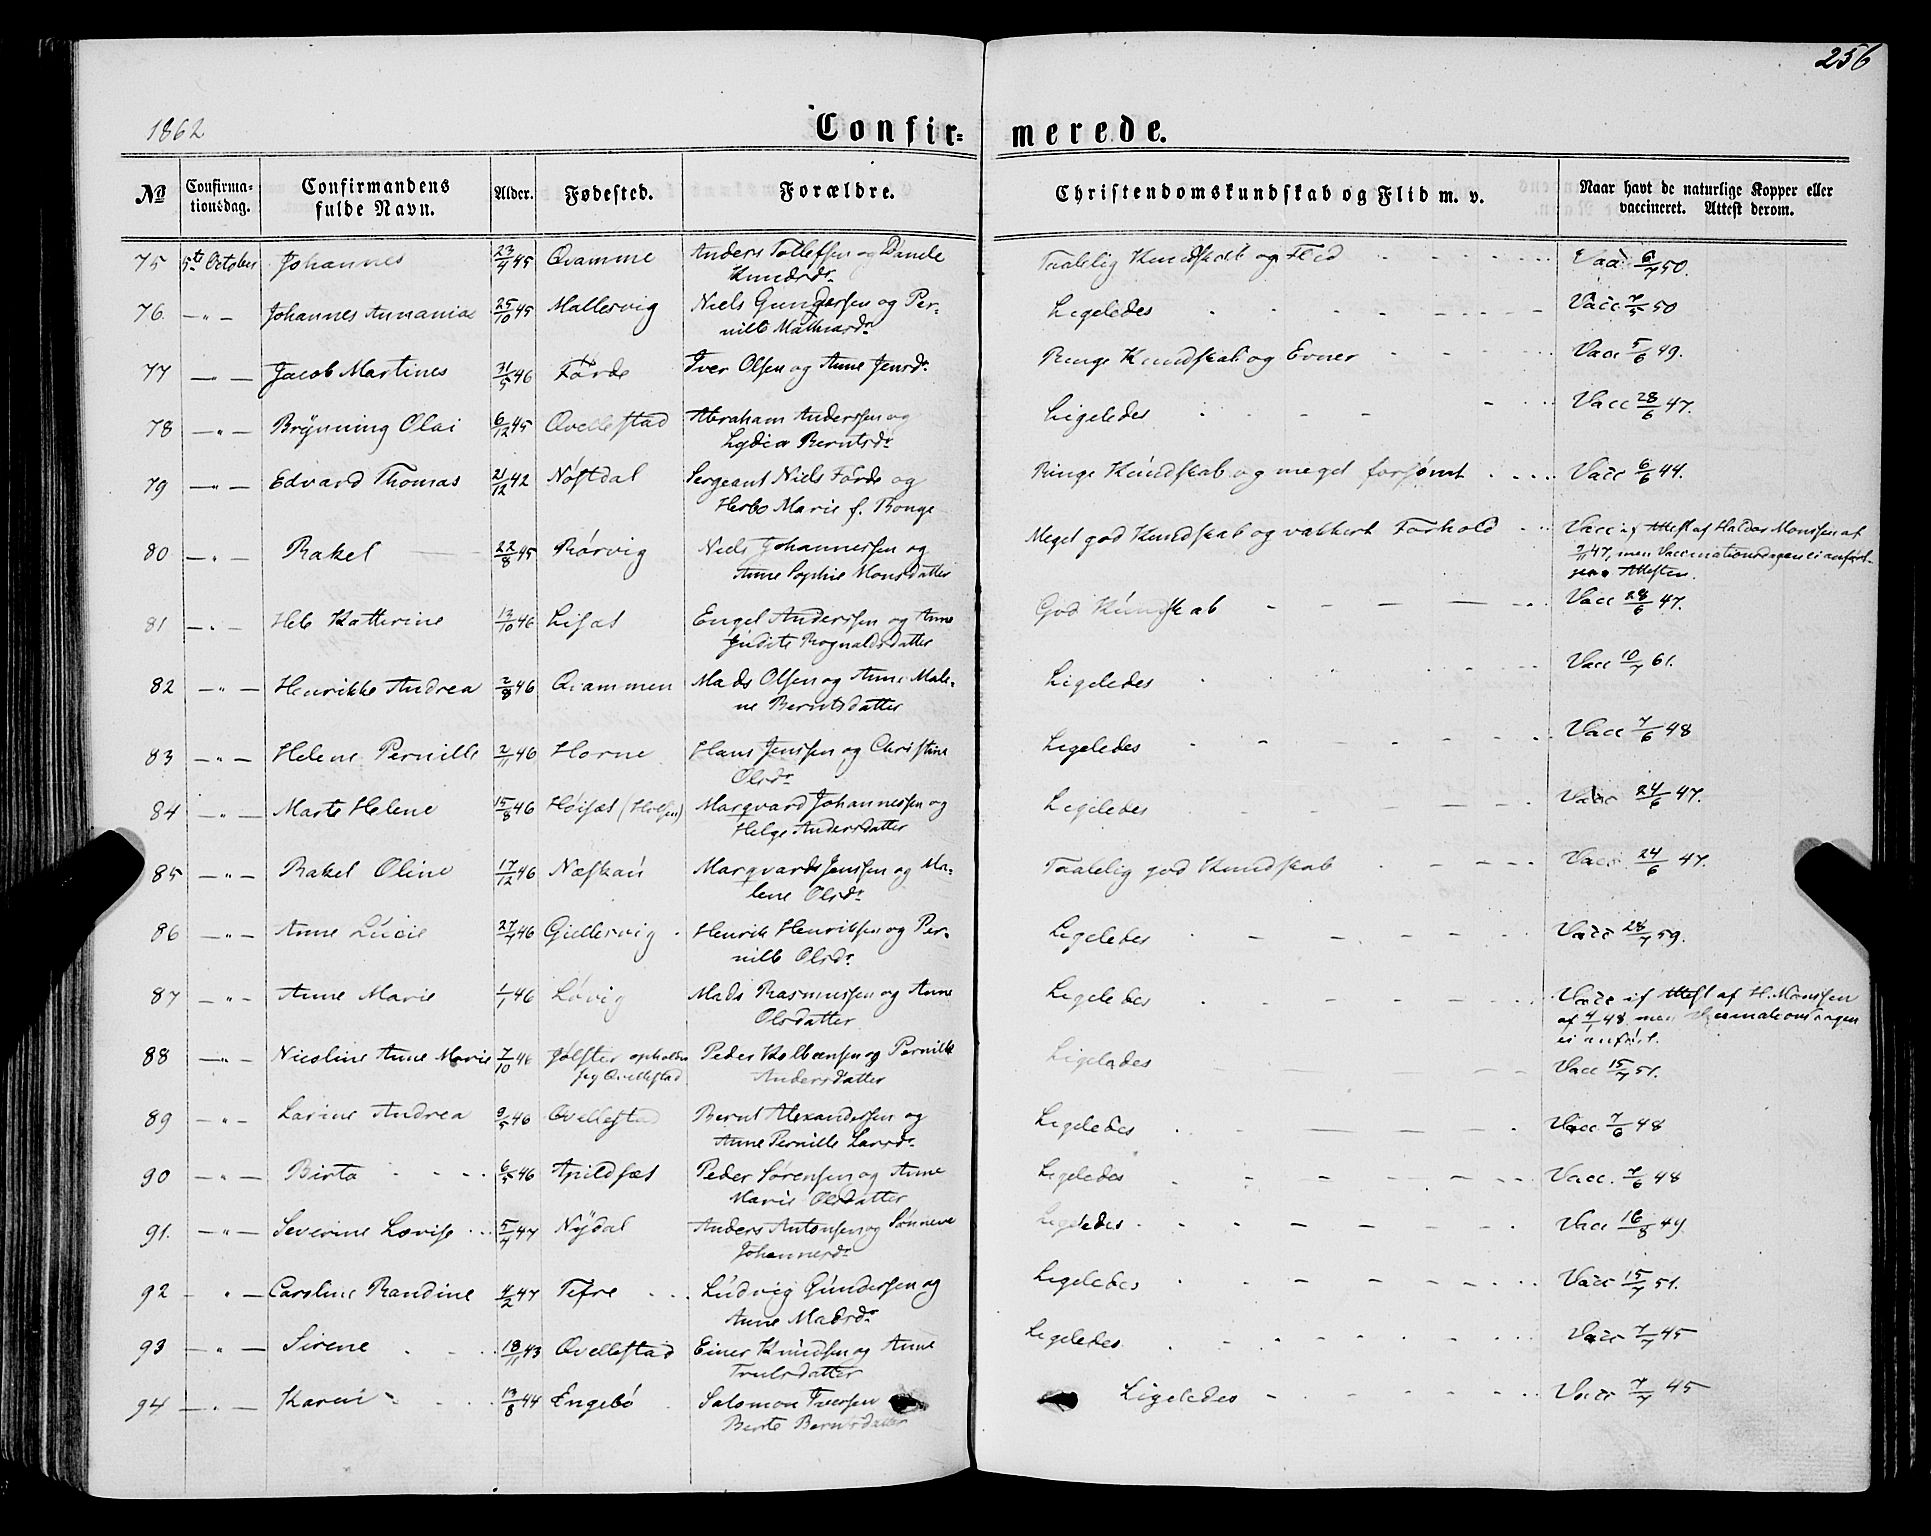 256
1862
Confir= merede.
No Confirma-tionsdag. Confirmandens fulde Navn. Alder. Fødested. Forældre. Christendomskundskab og Flid m. v. Naar havt de naturlige Kopper eller vaccineret. Attest derom.
75 5te October Johannes 23/4 45 Qvamme Anders Tollefsen og
Knudsdr. Taalelig Kundskab og Flid Vacc 6/7 50.
76. —"— Johannes Annanias 25/10 45 Mallesvig Niels Gundersen og Per-
nille Ligeledes Vacc 7/5 50
77 —"— Jacob Martines 31/5 46 Førde Iver Olsen og Anne Jensdr. Ringe Kundskab og Evner Vacc 5/6 49.
78 —"— Brynning Olai 6/12 45 Qvellestad Abraham Anderssen og
Lydia Berntsdr. Ligeledes Vacc 28/6 47.
79 —"— Edvard Thomas 21/12 42 Nøstdal Sergeant Niels Førde og
Marie f. Ringe Kundskab og meget forsømt Vacc 6/6 44.
80 —"— Rakel 22/8 45 Rørvig Niels Johannessen og
Anne Sophie Monsdatter Meget god Kundskab og vakkert Forhold Vacc if Attest af Haldor Monssen af
9/11 47, men Vaccinationsdagen ei anført
Attesten.
81 —"— Katterine 13/10 46 Engel Anderssen og Anne
Judite Rognaldsdatter God Kundskab Vacc 28/6 47.
82 —"— Henrikke Andrea 2/8 46 Qvammen Mads Olsen og Anne Male-
ne Berntsdatter Ligeledes Vacc 10/7 61.
83 —"— Helene Pernille 2/11 46 Horne Hans Jenssen og Christine
Olsdr. Ligeledes Vacc 7/6 48
84 —"— Marte Helene 15/8 46 Høisæt Marqvard Johannessen og
Helge Andersdatter Ligeledes Vacc 24/6 47.
85 —"— Rakel Oline 17/12 46 Marqvard Jenssen og Ma-
lene Olsdr. Taalelig god Kundskab Vacc 24/6 47.
86 —"— Anne Lucie 27/4 46 Giellesvig Henrik Henriksen og Per-
nille Olsdr. Ligeledes Vacc 28/7 59.
87 —"— Anne Marie 1/1 46 Løvig Mads Rasmussen og Anne
Olsdatter Ligeledes Vacc if Attest af H. Monssen
af 4/1 48, men Vaccinationsdagen
ei anført.
88 —"— Nicoline Anne Marie 7/10 46 Jølster opholder
sig Qvellestad Peder Kolbensen og Pernille
Andersdatter Ligeledes Vacc 15/7 51.
89 —"— Larine Andrea 9/5 46 Qvellestad Bernt Alexandersen og
Anne Pernille Larsdr. Ligeledes Vacc 7/6 48
90 —"— Birte 6/5 46 Apildsæt Peder Sørensen og Anne
Marie Olsdatter Ligeledes Vacc. 7/6 48
91. —"— Severine Lovise 5/4 47 Nydal Anders Antonsen og Sønneve
Johannesdr. Ligeledes Vacc 16/8 49
92 —"— Caroline Randine 4/2 47 Tefre Ludvig Gundersen og
Anne Madsdr. Ligeledes Vacc 15/7 51.
93 —"— Sirene 18/11 43 Qvellestad Einer Knudsen og Anne
Trulsdatter Ligeledes Vacc 7/7 45
94 —"— Karen 13/8 44 Engebø Salomon Iversen
Berte Berntsdatter Ligeledes Vacc 7/7 45